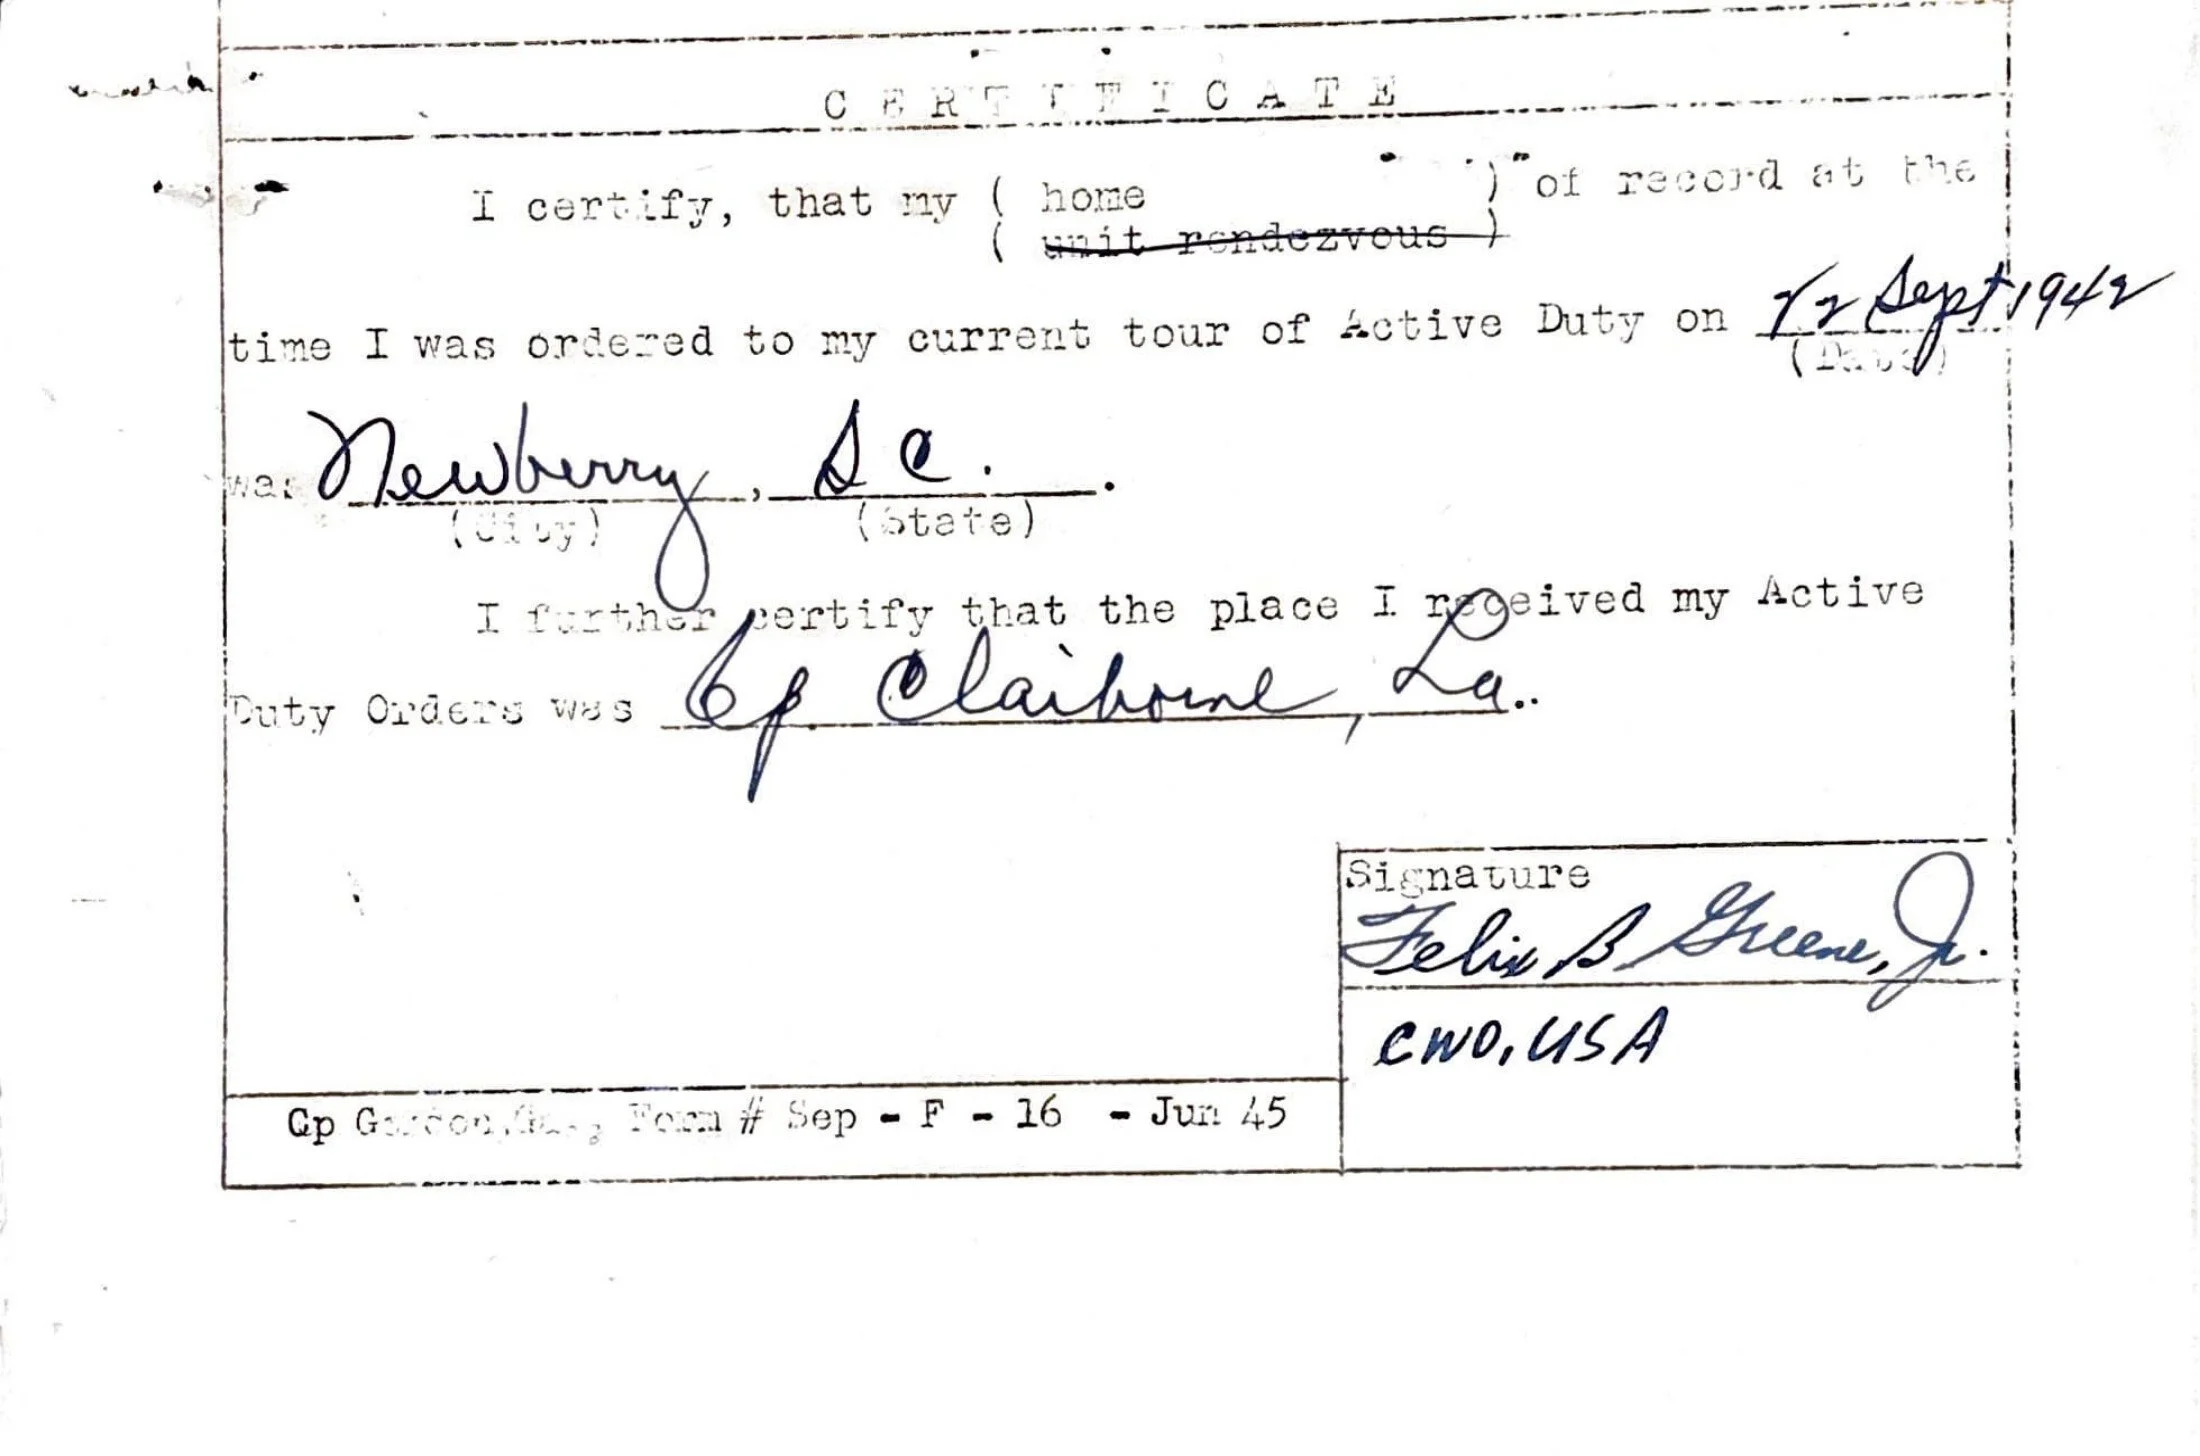 CERTIFICATE
I certify, that my ( home ) of record at the
( unit rendezvous )
time I was ordered to my current tour of Active Duty on 22 Sept 1942
(Date)
was Newberry, S C.
(City) (State)
I further certify that the place I received my Active
Duty Orders was Cp Claiborne, La..
Signature
Felix B Greene, Jr.
CWO, USA
Cp Gordon, Ga., Form # Sep - F - 16 - Jun 45